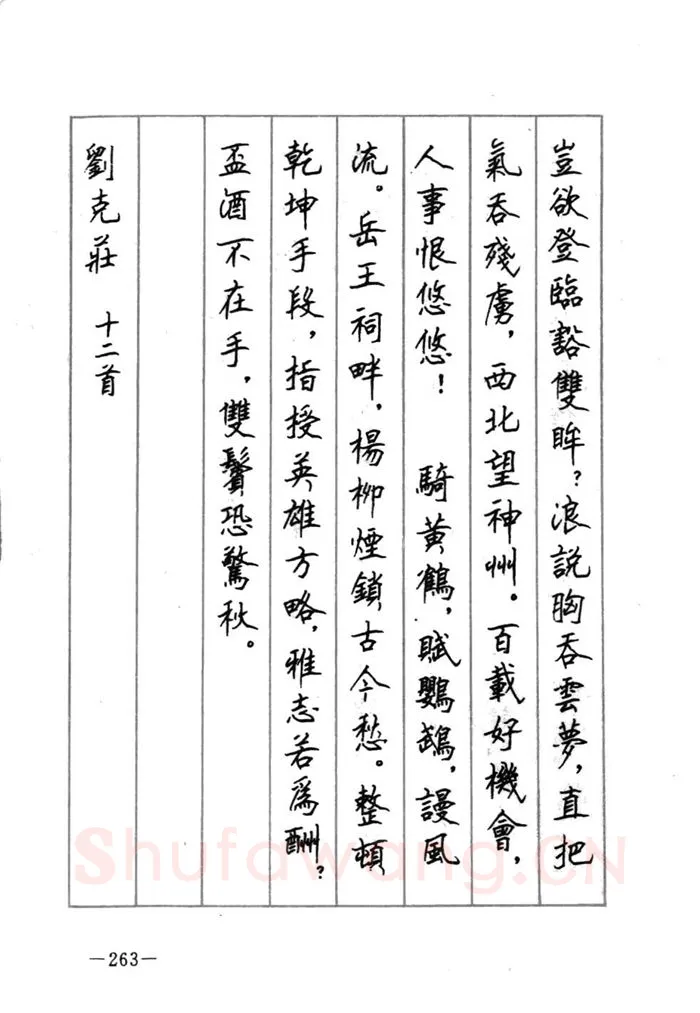 豈欲登臨豁雙眸？浪說胸吞雲夢，直把
氣吞殘虜，西北望神州。百載好機會，
人事恨悠悠！　騎黃鶴，賦鸚鵡，謾風
流。岳王祠畔，楊柳煙鎖古今愁。整頓
乾坤手段，指授英雄方略，雅志若爲酬？
盃酒不在手，雙鬢恐驚秋。
劉克莊　十二首
—263—
Shufawang.CN